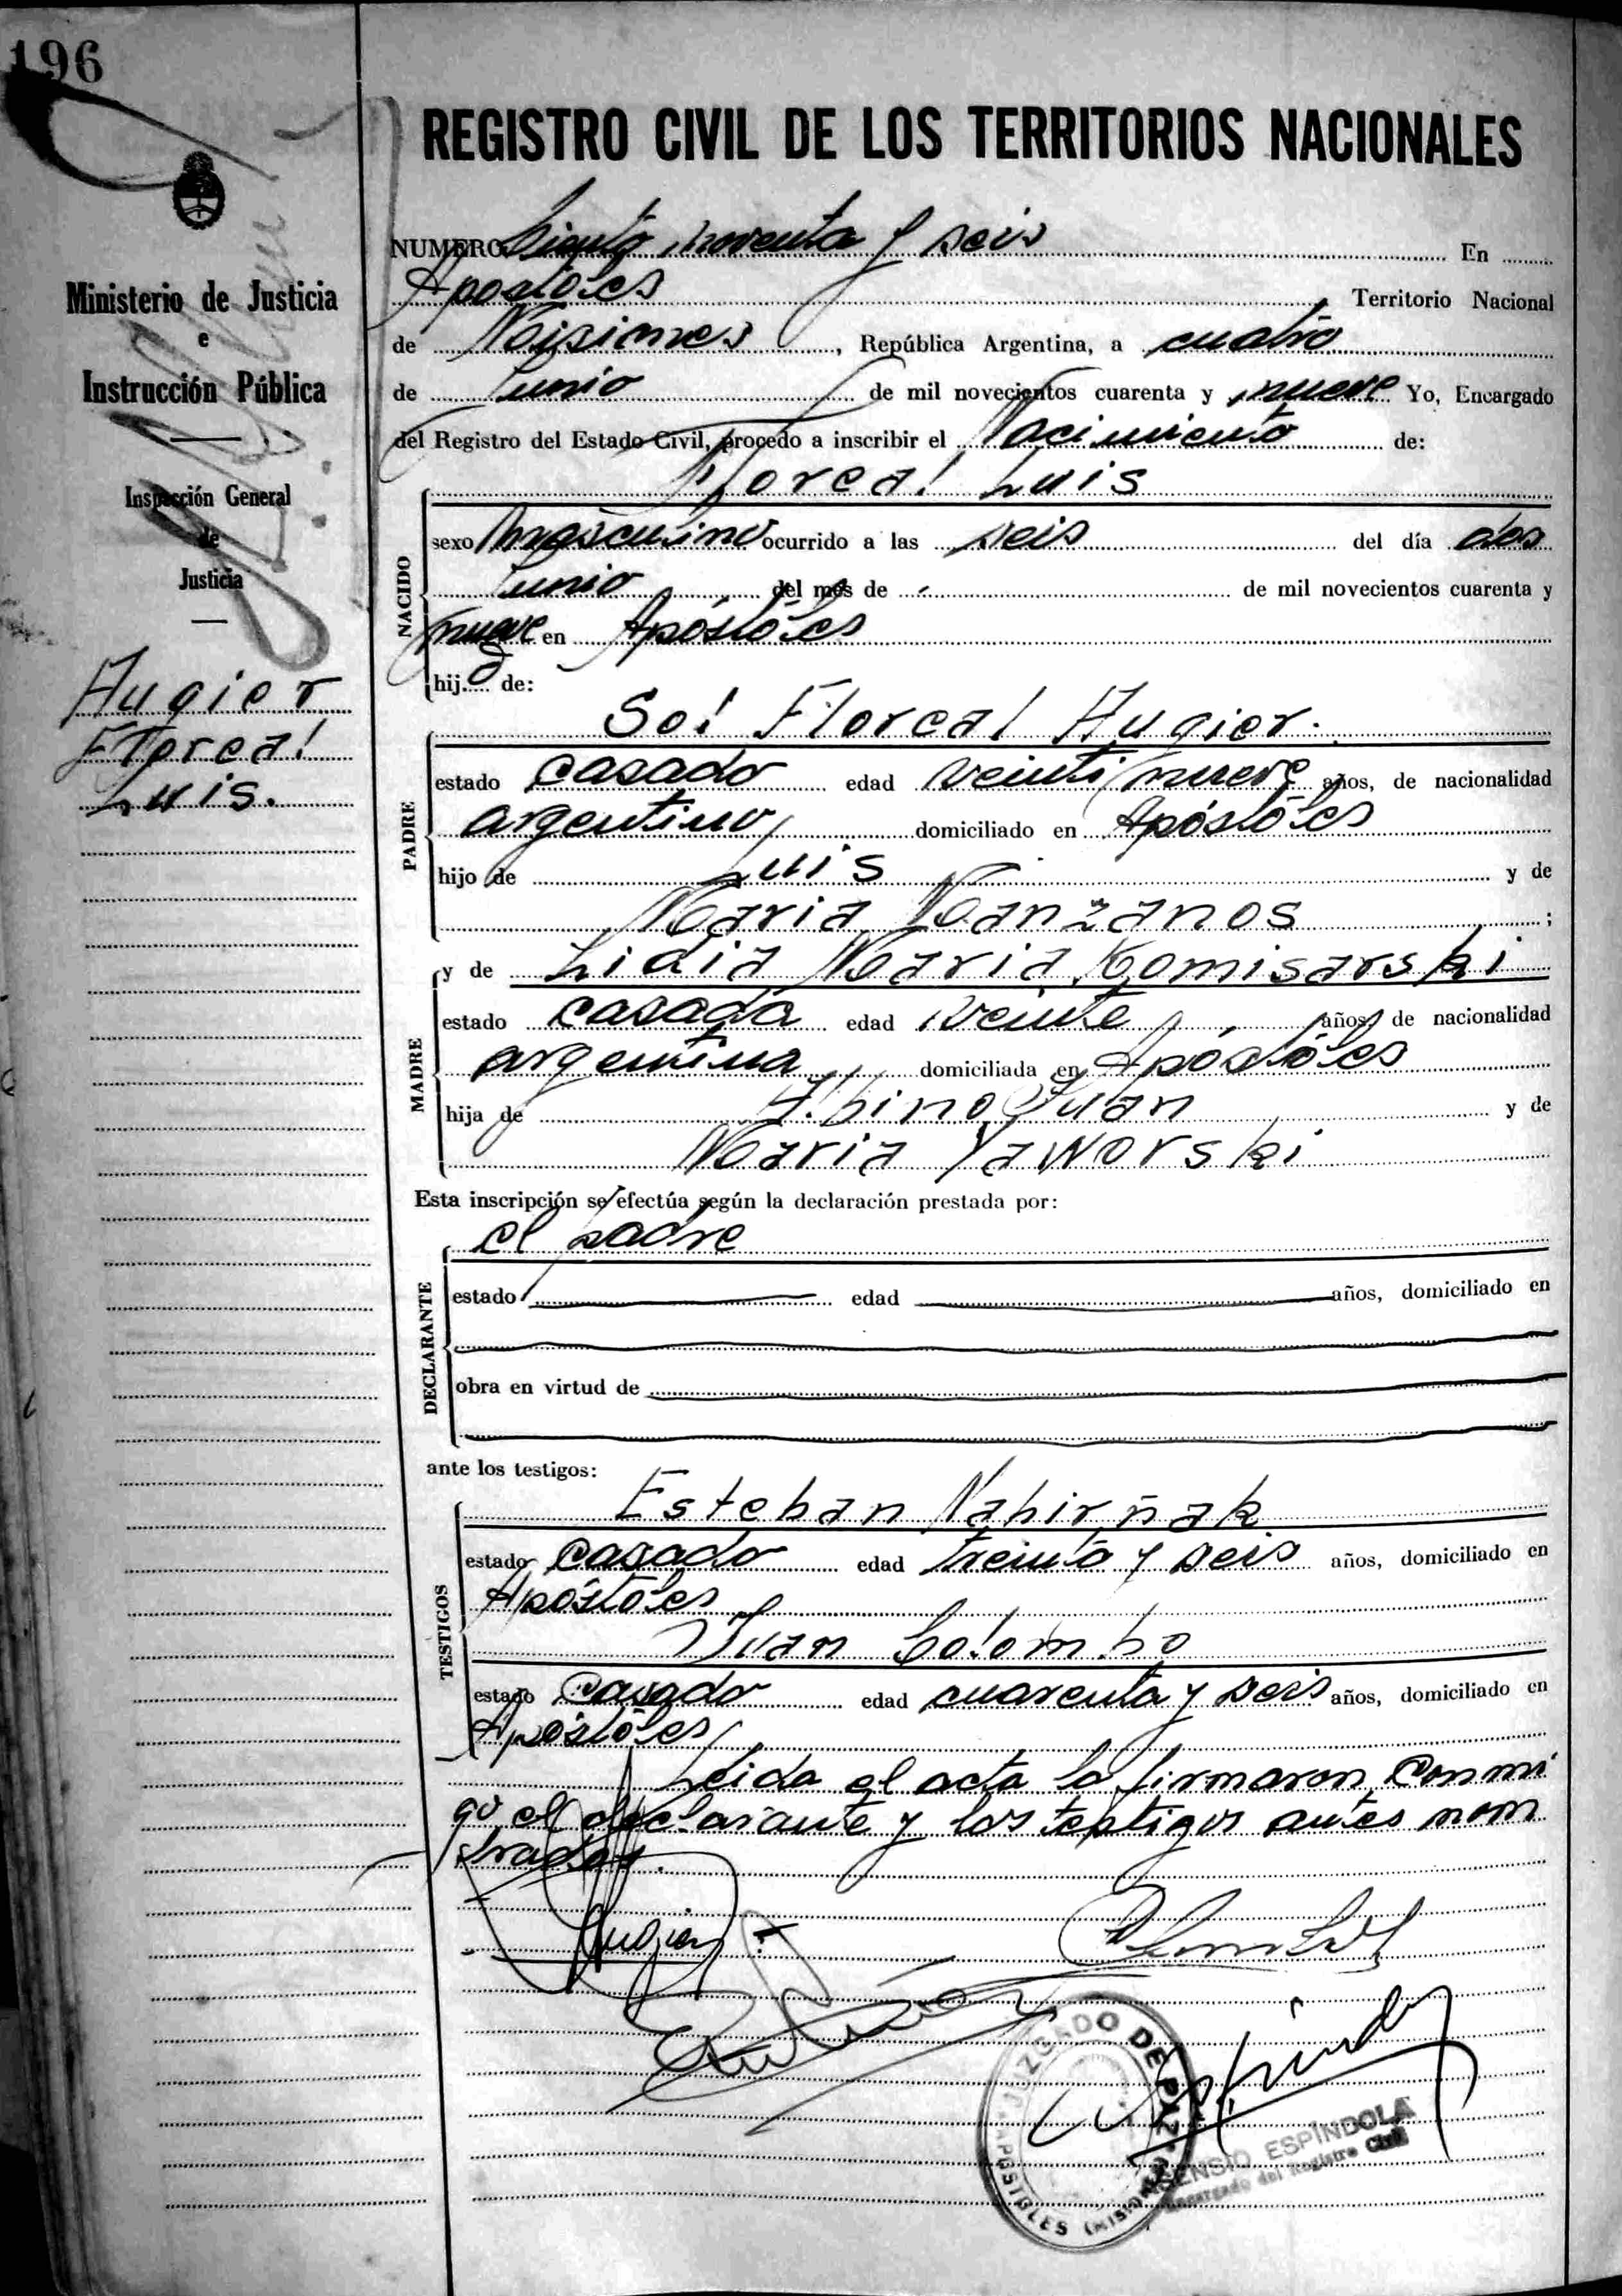 196
REGISTRO CIVIL DE LOS TERRITORIOS NACIONALES
Ministerio de Justicia
e
Instrucción Pública
Inspección General
de
Justicia
Augier
Floreal
Luis.
NUMERO Ciento noventa y seis En
Apóstoles Territorio Nacional
de Misiones, República Argentina, a cuatro
de Junio de mil novecientos cuarenta y nueve Yo, Encargado
del Registro del Estado Civil, procedo a inscribir el Nacimiento de:
Floreal Luis
NACIDO
sexo masculino ocurrido a las seis del día dos
Junio del mes de de mil novecientos cuarenta y
nueve en Apóstoles
hijo de:
Sol Floreal Augier.
PADRE
estado casado edad veintinueve años, de nacionalidad
argentino domiciliado en Apóstoles
hijo de Luis y de
Maria Manzanos ;
y de Lidia Maria Komisarski
MADRE
estado casada edad veinte años, de nacionalidad
argentina domiciliada en Apóstoles
hija de Albino Juan y de
Maria Yaworski
Esta inscripción se efectúa según la declaración prestada por:
el padre
DECLARANTE
estado edad años, domiciliado en
obra en virtud de
ante los testigos:
Esteban Nahirñak
TESTIGOS
estado casado edad treinta y seis años, domiciliado en
Apóstoles
Juan Colombo
estado casado edad cuarenta y seis años, domiciliado en
Apóstoles
Leida el acta la firmaron conmi
go el declarante y los testigos antes nom
brados.
Augier
JUZGADO DE PAZ
APOSTOLES (MISIONES)
ASENSIO ESPÍNDOLA
Encargado del Registro Civil